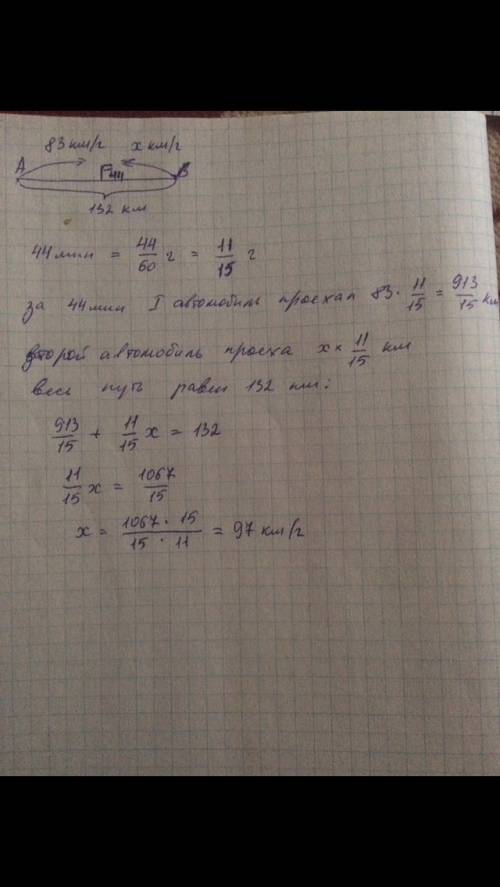 83 км/г х км/г
А 44 В
132 км
44 мин = 44/60 г = 11/15 г
за 44 мин I автомобиль проехал 83 · 11/15 = 913/15 км
второй автомобиль проеха х × 11/15 км
весь путь равен 132 км:
913/15 + 11/15 х = 132
11/15 х = 1067/15
х = 1067 · 15 / 15 · 11 = 97 км/г